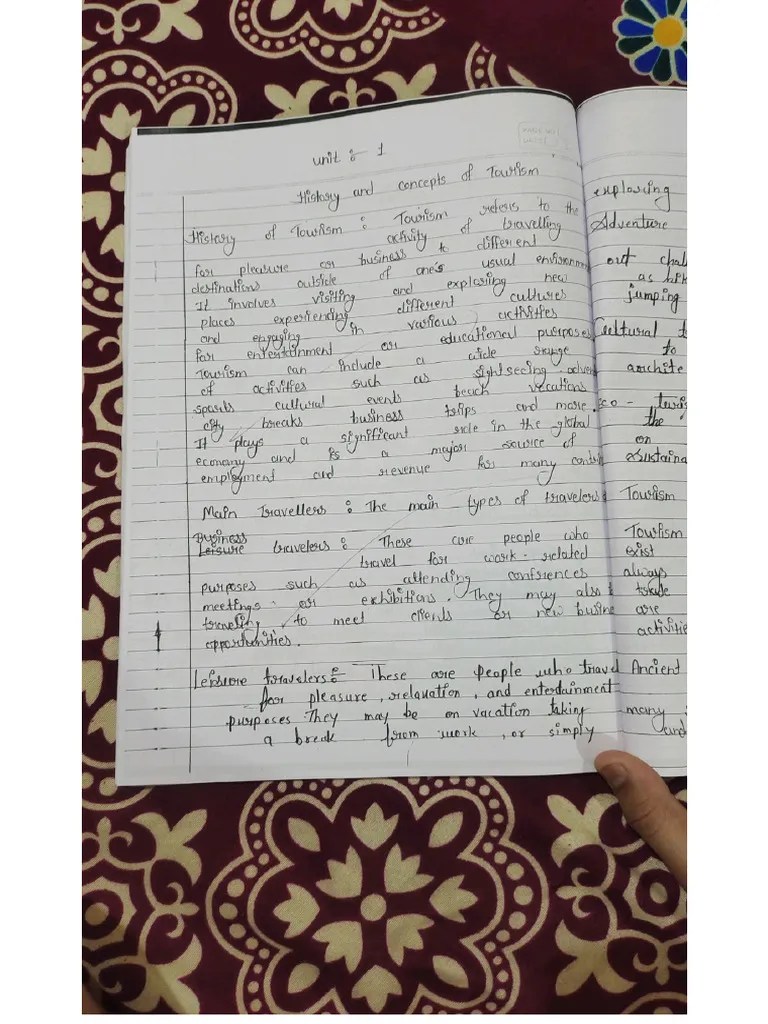 unit :- 1
History and concepts of Tourism
History of Tourism : Tourism refers to the
activity of travelling
for pleasure or business to different
destinations outside of one's usual environm
It involves visiting and exploring new
places experiending different cultures
and engaging in various activities
for entertainment or educational purposes
Tourism can include a wide range
of activities such as sightseeing adven
sports cultural events beach vacations
city breaks business trips and more.
It plays a significant role in the global
economy and is a major source of
employment and revenue for many contri
Main Travellers : The main types of travelers
Business
Leisure travelers : These are people who
travel for work-related
purposes such as attending confrences
meetings or exhibitions. They may also
traveling to meet clients or new busine
opportunities.
Leisure travelers :- These are people who travel
for pleasure, relaxation, and entertainment
purposes They may be on vacation taking
a break from work, or simply
exploring
Adventure
out chal
as hik
jumping
Cultural t
to
amchite
eco - touri
the
on
sustaina
Tourism
Tourism
exist
always
trade
are
activitie
Ancient
many
and